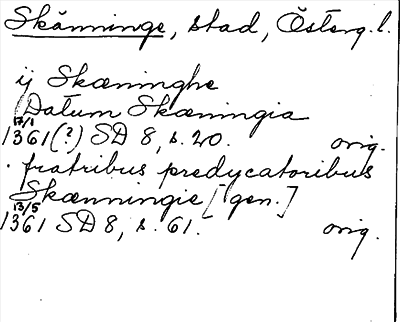 Skänninge, stad, Österg.l.
ij Skæninghe
Datum Skæningia
17/1 1361(?) SD 8, s. 20. orig.
fratribus predycatoribus
Skænningie [gen.]
13/5 1361 SD 8, s. 61. orig.